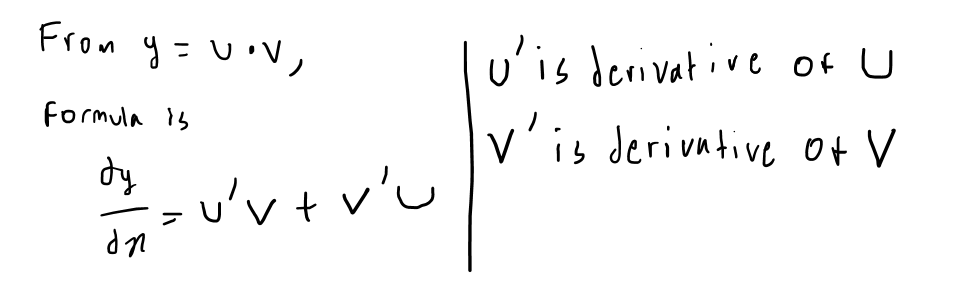 From y = u · v,
formula is
dy/dx = u'v + v'u
u' is derivative of u
v' is derivative of v